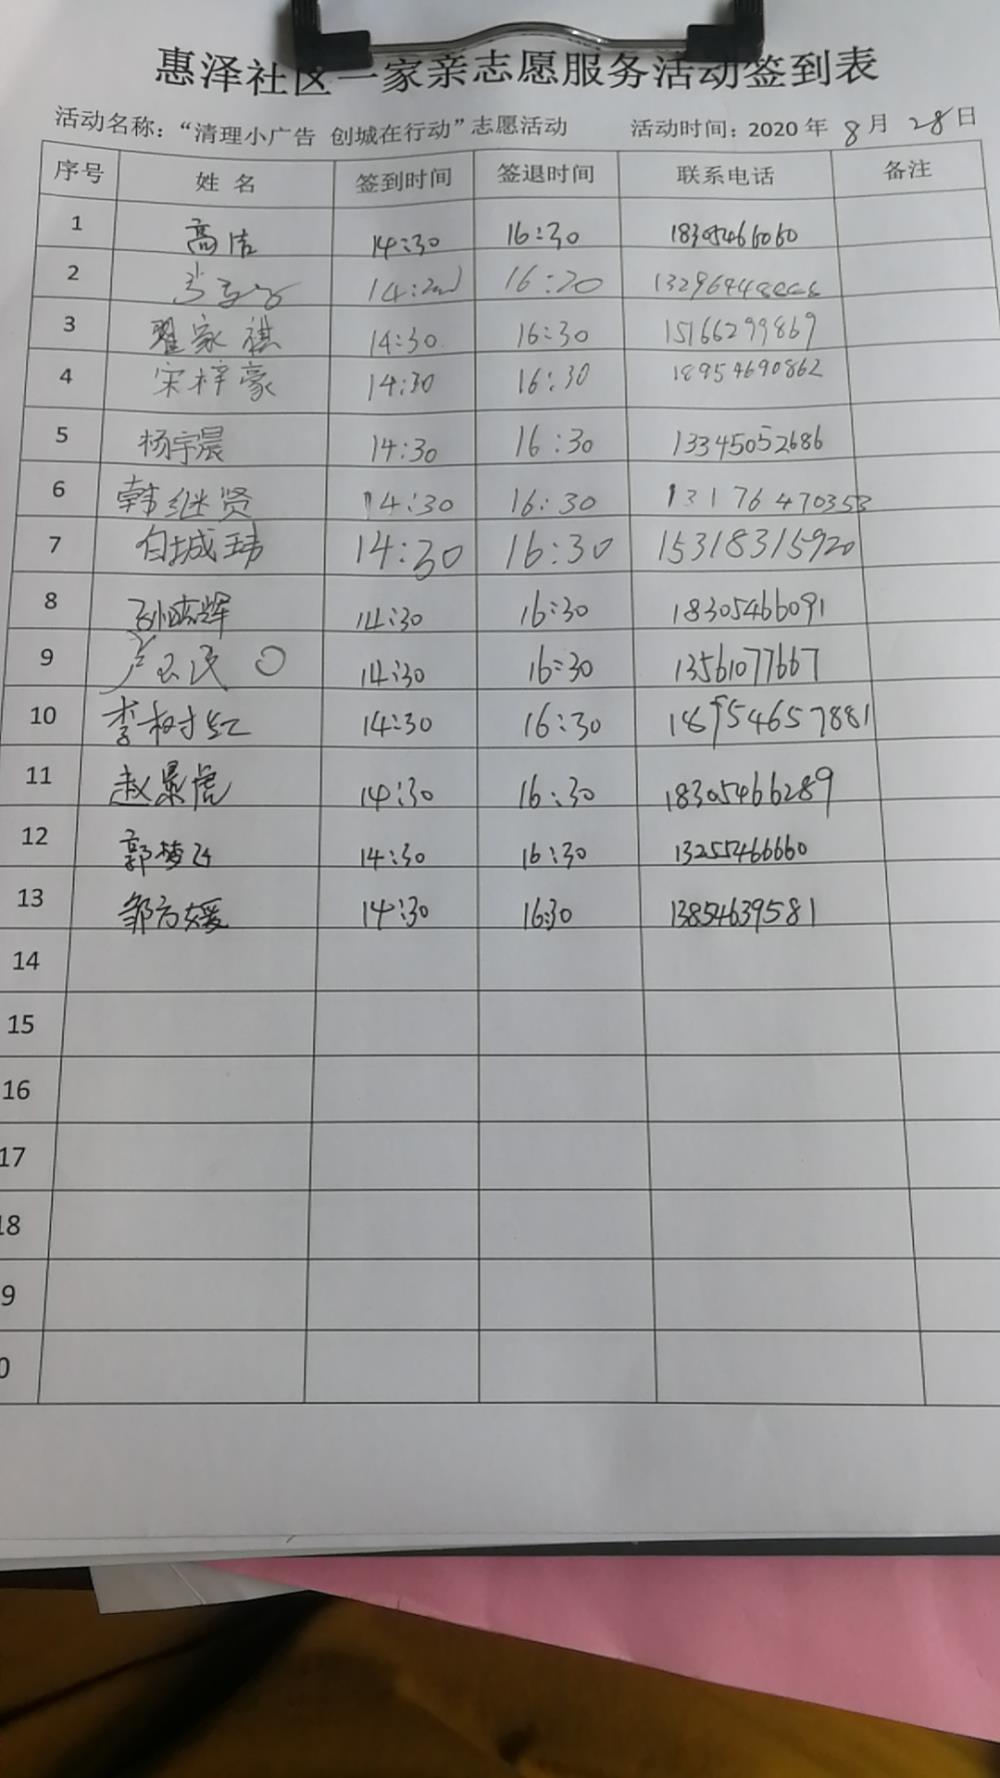 惠泽社区一家亲志愿服务活动签到表
活动名称：“清理小广告 创城在行动”志愿活动 活动时间：2020年8月28日
序号 姓名 签到时间 签退时间 联系电话 备注
1 高洁 14:30 16:30 18305466060
2 16:20
3 翟家祺 14:30 16:30 15166299869
4 宋梓豪 14:30 16:30 18954690862
5 杨宇晨 14:30 16:30 13345052686
6 韩继贤 14:30 16:30 13176470353
7 白城玮 14:30 16:30 15318315920
8 14:30 16:30 18305466091
9 14:30 16:30 13561077667
10 李树红 14:30 16:30 18954657881
11 赵景虎 14:30 16:30 18305466289
12 郭梦飞 14:30 16:30 13255466660
13 邹方媛 14:30 16:30 13854639581
14
15
16
17
18
9
0